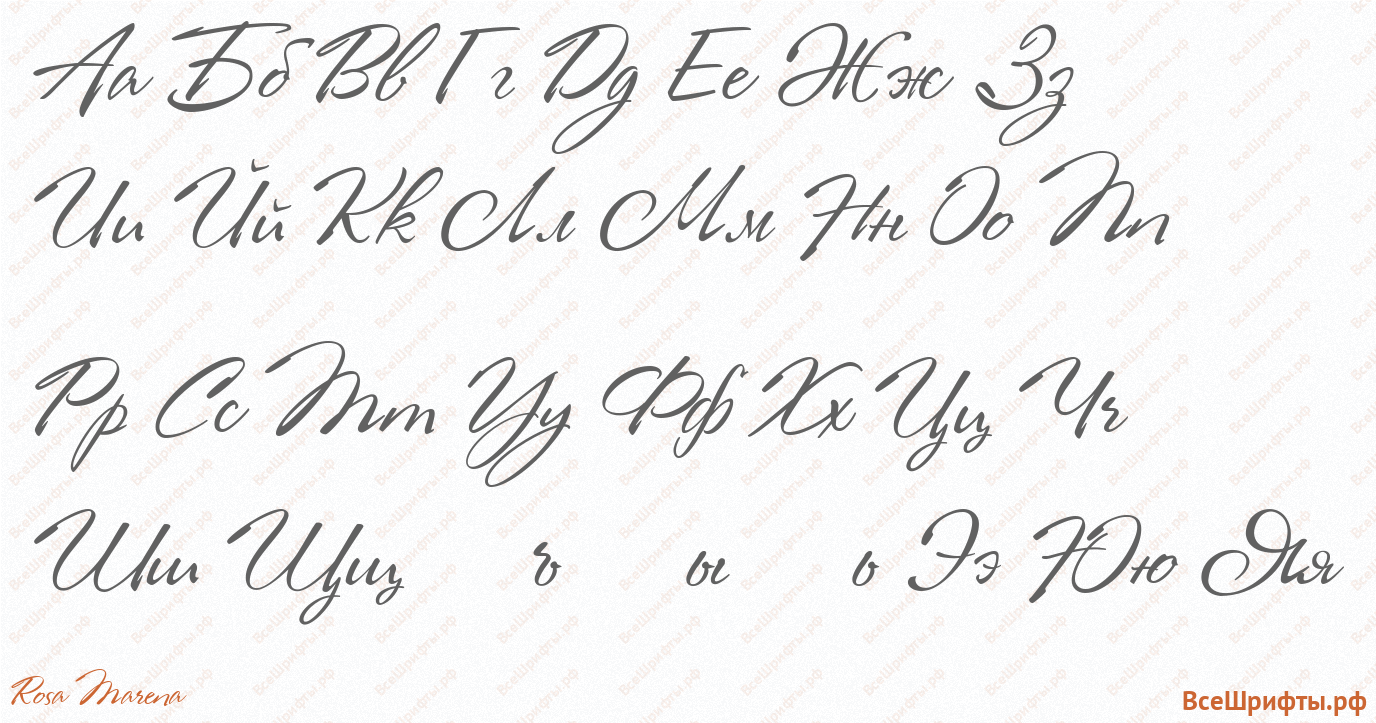 Аа Бб Вв Гг Дд Ее Жж Зз
Ии Йй Кк Лл Мм Нн Оо Пп
Рр Сс Тт Уу Фф Хх Цц Чч
Шш Щщ ъ ы ь Ээ Юю Яя
Rosa Marena
ВсеШрифты.рф